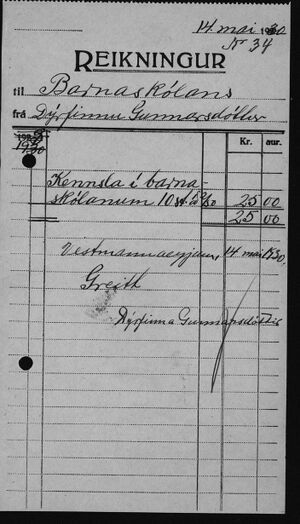 14. mai 1930
Nr 34
REIKNINGUR
til Barnaskólans
frá Dýrfinnu Gunnarsdóttur
1930 Kr. aur.
Kennsla í barna-
skólanum 10 st. á 2/50 25 00
25 00
Vestmannaeyjum, 14 mai 1930.
Greitt
Dýrfinna Gunnarsdóttir